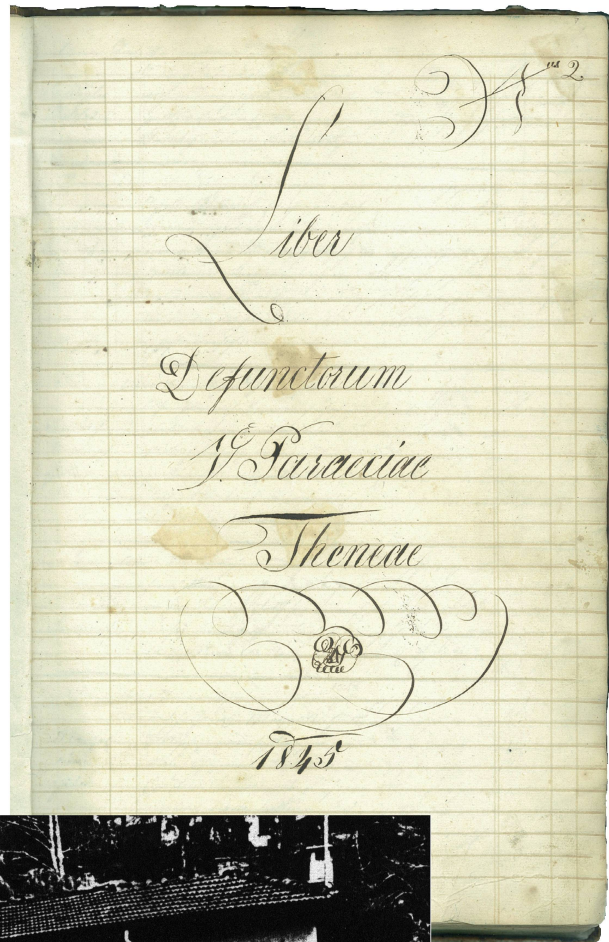 nus 2
Liber
Defunctorum
Paraeciae
Theneae
1845